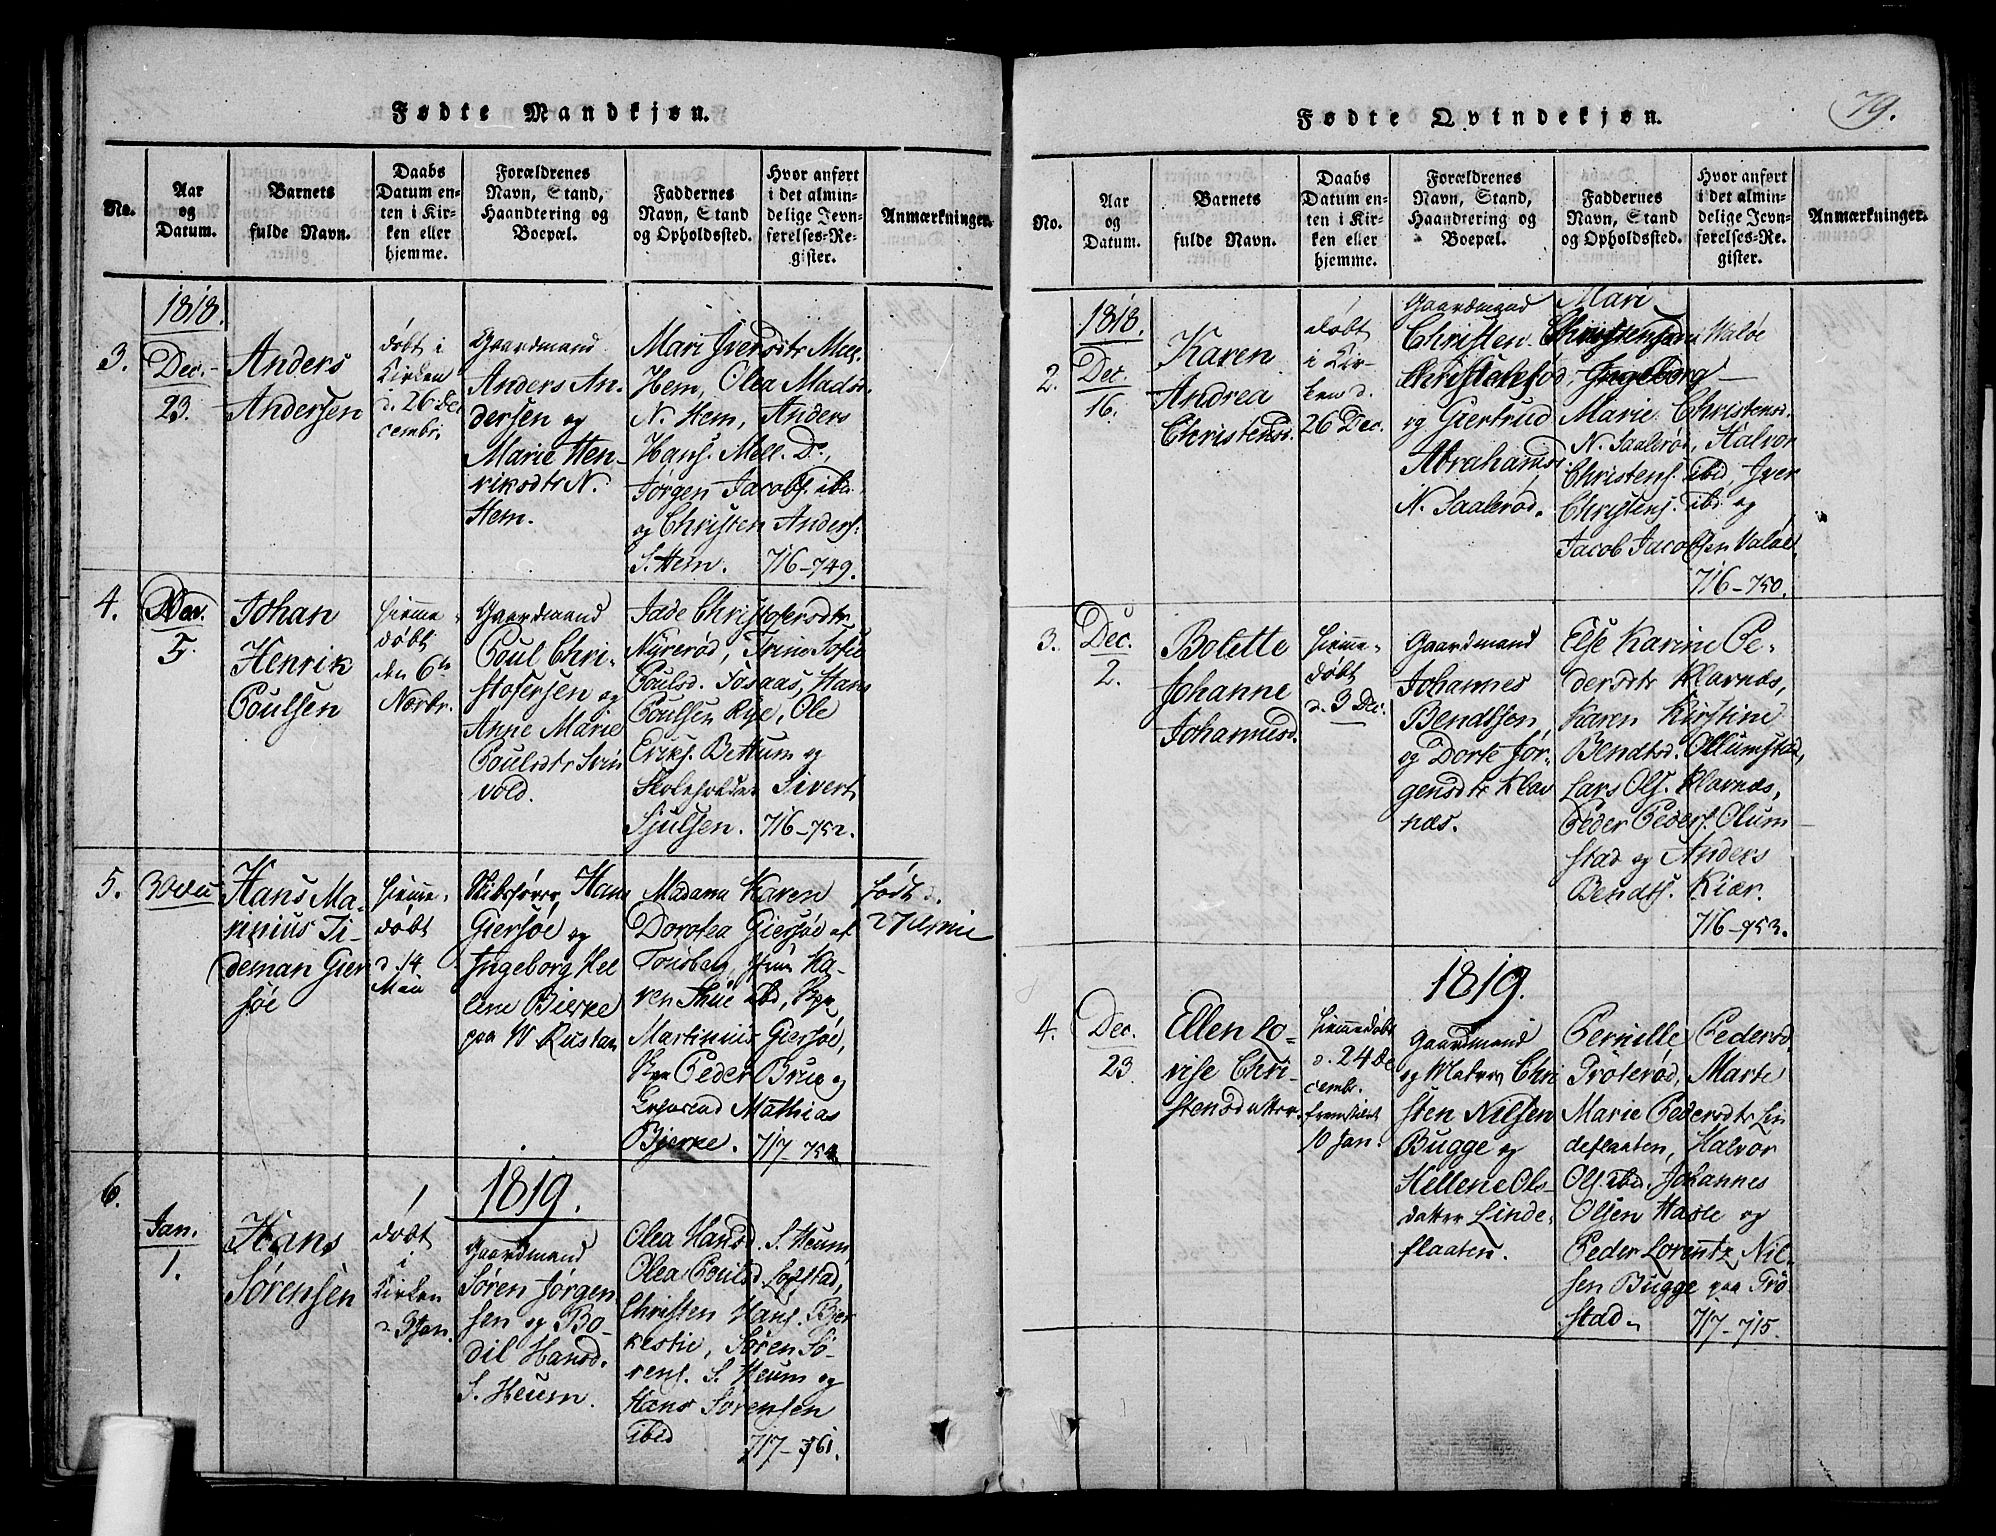 Fødte Mandkjøn.
No.
Aar
og
Datum.
Barnets
fulde Navn.
Daabs
Datum en-
ten i Kir-
ken eller
hjemme.
Forældrenes
Navn, Stand,
Haandtering og
Boepæl.
Faddernes
Navn, Stand
og Opholdssted.
Hvor anført
i det almin-
delige Jevn-
førelses-Re-
gister.
Anmærkninger.
3.
1818.
Dec.
23.
Anders
Andersen
døbt i
Kirken
d. 26 De
cembr.
Gaardmand
Anders An-
dersen og
Marie Hen-
riksdtr N.
Hem.
Mari Iversdtr Mell.
Hem, Olea Madsd.
N. Hem, Anders
Hans. Mell. Do,
Jørgen Jacobs. ibd.
og Christen Anders.
S. Hem. 716-749.
4.
5.
Johan
Henrik
Poulsen
hjemme-
døbt
den 6te
Novbr.
Gaardmand
Poul Chri-
stofersen og
Anne Marie
Poulsdtr Svin
vold.
Jade Christofersdtr
Nyrerød, Trine Sofie
Poulsd. Fosaas, Hans
Poulsen Rye, Ole
Eriks. Bettum og
Skoleholder Sivert
Sjulsen. 716-752.
5.
Hans Ma-
rinius Ti-
deman Gier
søe
hjemme-
døbt
d. 14
Mai
Skibsfører Hans
Giersøe og
Ingeborg Hel
lene Bierke
paa W Rustan
Madame Karen
Dorotea Giersøe af
Tønsberg, Ka-
ren Thue ibd,
Martinius Giersøe,
Peder Brue og
Mathias
Bjerke. 717 754
født d.
6.
1819.
Jan.
1.
Hans
Sørensen
døbt
i
Kirken
d. 9 Jan.
Gaardmand
Søren Jørgen
sen og Bo-
dil Hansd.
S. Heum.
Olea Hansd. S. Heum,
Olea Poulsd Lofstad,
Christen Hans. Bjer
kestie, Søren Sø-
rens. S. Heum og
Hans Sørensen
ibid 717-761.
Fødte Qvindekjøn.
79.
No.
Aar
og
Datum.
Barnets
fulde Navn.
Daabs
Datum en-
ten i Kir-
ken eller
hjemme.
Forældrenes
Navn, Stand,
Haandtering og
Boepæl.
Faddernes
Navn, Stand
og Opholdssted.
Hvor anført
i det almin-
delige Jevn-
førelses-Re-
gister.
Anmærkninger.
2.
1818.
Dec.
16.
Karen
Andrea
Christensd.
døbt
i Kir-
ken d.
26 Dec.
Gaardmand
Christen
Christensen
og Giertrud
Abrahamsd.
N. Saalerød.
Mari
Valøe
Ingeborg
Marie Christensd.
N. Saalerød, Halvor
Christens. ibd, Iver
Christens. ibd og
Jacob Jacobsen Valøe.
716-750.
3.
Dec.
2.
Bolette
Johanne
Johannesd.
hjemme-
døbt
d. 3 Dec.
Gaardmand
Johannes
Bendtsen,
og Dorte Jør-
gensdtr Klav
næs.
Else Karine Pe-
dersdtr Klavnæs,
Karen Kirstine
Bendtsd. Ollumstad,
Lars Ols. Klavnæs,
Peder Peders. Olum-
stad og Anders
Bendts. Kiær.
716-753.
1819.
4.
Dec.
23
Ellen Lo-
vise Chri-
stensdatter
hjemmedøbt
d. 24 De
cembr.
fremstillet
10 Jan.
Gaardmand
og Matros Chri
sten Nilsen
Bugge og
Hellene Ols-
datter Linde-
flaaten.
Pernille Pedersd.
Prøterød, Marte
Marie Pedersdtr Lin
deflaaten, Halvor
Ols. ibd. Johannes
Olsen Hasle og
Peder Lorentz Nil-
sen Bugge paa Trø
stad. 717-715.